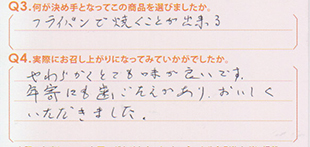 Q3.何が決め手となってこの商品を選びましたか。
フライパンで焼くことが出来る
Q4.実際にお召し上がりになってみていかがでしたか。
やわらかくとても味が良いです。
年寄にも歯ごたえがあり、おいしく
いただきました。